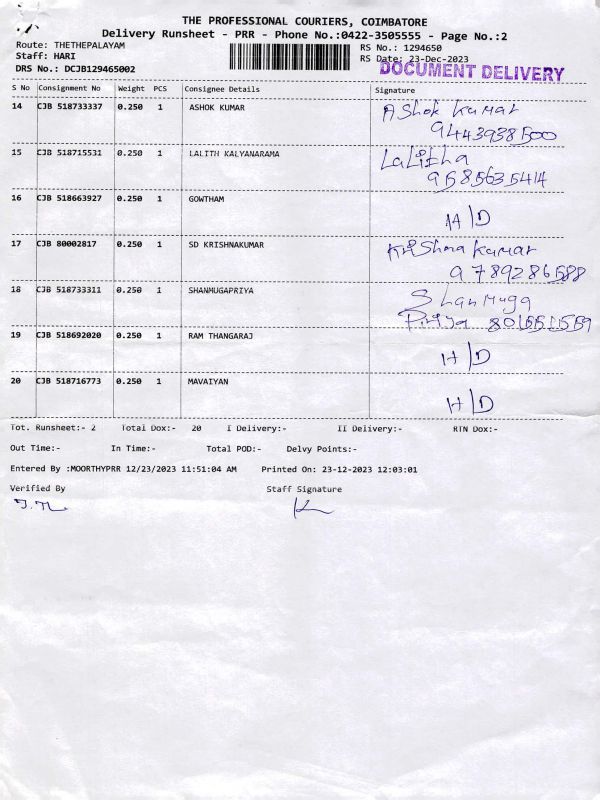 THE PROFESSIONAL COURIERS, COIMBATORE
Delivery Runsheet - PRR - Phone No.:0422-3505555 - Page No.:2
Route: THETHEPALAYAM RS No.: 1294650
Staff: HARI RS Date: 23-Dec-2023
DRS No.: DCJB129465002 DOCUMENT DELIVERY
S No Consignment No Weight PCS Consignee Details Signature
14 CJB 518733337 0.250 1 ASHOK KUMAR Ashok Kumar
9443938500
15 CJB 518715531 0.250 1 LALITH KALYANARAMA Lalitha
9585635414
16 CJB 518663927 0.250 1 GOWTHAM H/D
17 CJB 80002817 0.250 1 SD KRISHNAKUMAR Krishna Kumar
9789286588
18 CJB 518733311 0.250 1 SHANMUGAPRIYA Shanmuga
Priya
19 CJB 518692020 0.250 1 RAM THANGARAJ H/D
20 CJB 518716773 0.250 1 MAVAIYAN H/D
Tot. Runsheet:- 2 Total Dox:- 20 I Delivery:- II Delivery:- RTN Dox:-
Out Time:- In Time:- Total POD:- Delvy Points:-
Entered By :MOORTHYPRR 12/23/2023 11:51:04 AM Printed On: 23-12-2023 12:03:01
Verified By Staff Signature